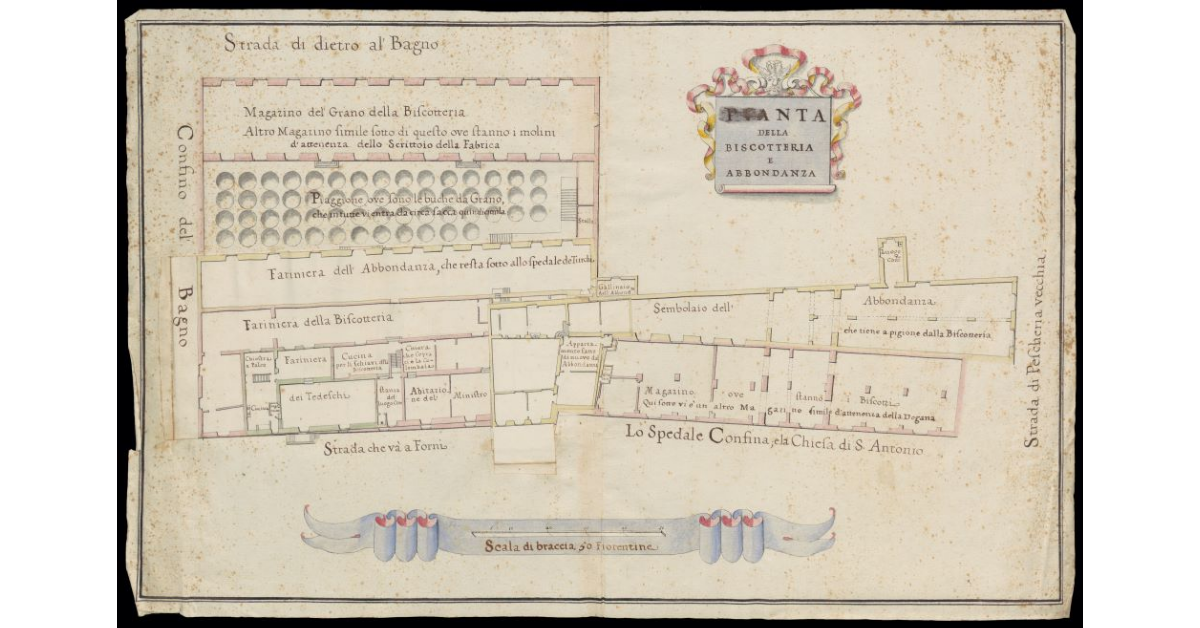 Strada di dietro al' Bagno
PIANTA
DELLA
BISCOTTERIA
E
ABBONDANZA
Magazino del' Grano della Biscotteria
Altro Magazino simile sotto di questo ove stanno i molini
d'attenenza dello Scrittoio della Fabrica
Confino del' Bagno
Piaggione ove sono le buche da Grano,
che in tutte vi entra da circa sacca
Fariniera dell' Abbondanza, che resta sotto allo spedale de
Fariniera della Biscotteria
Sembolaio dell' Abbondanza
che tiene a pigione dalla Biscotteria
Strada di Pescheria vecchia
Fariniera
Cucina
dei Tedeschi
stanza
del
Abitazio
ne del
Ministro
Abbondanza
Magazino ove stanno Biscotti
Qui sotto vi è un altro Magazino simile d'attenenza della Dogana
Strada che và a Forni
Lo Spedale Confina, e la Chiesa di S. Antonio
Scala di braccia 50 fiorentine